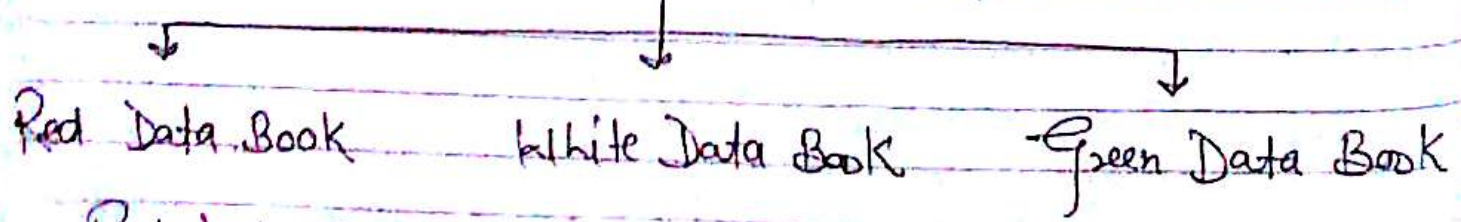 Red Data Book White Data Book Green Data Book